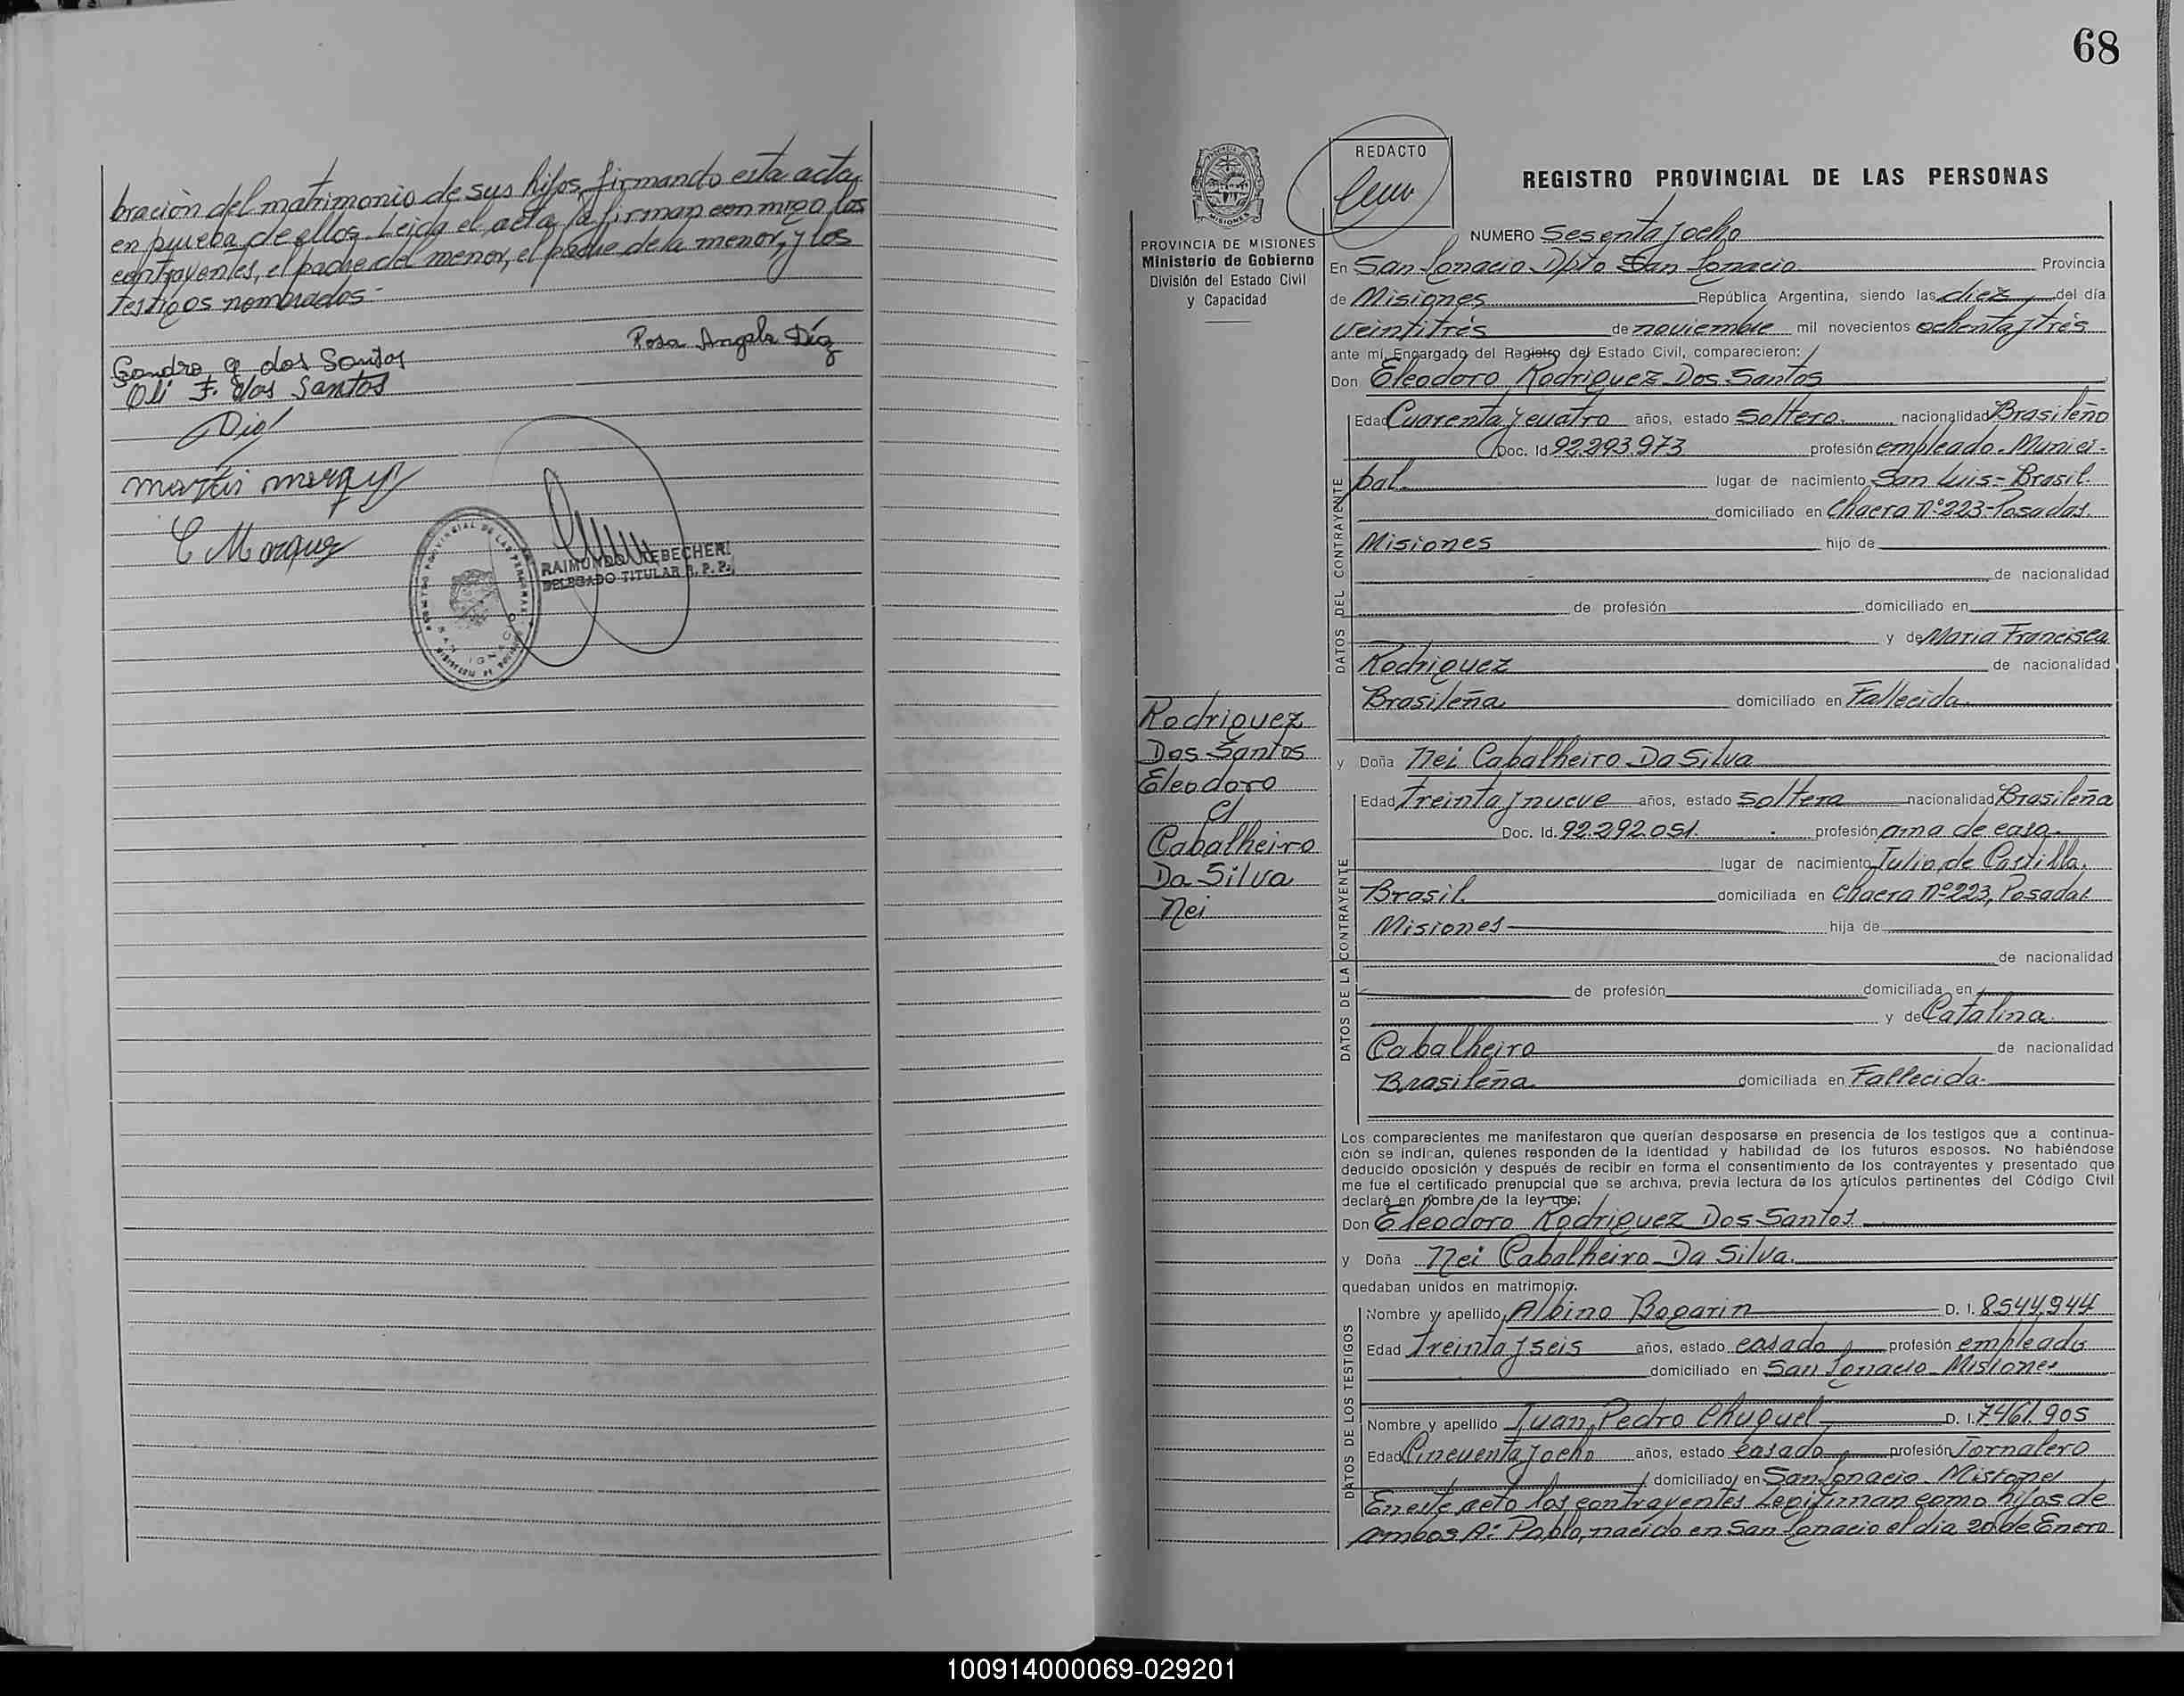 bración del matrimonio de sus hijos, firmando esta acta,
en prueba de ellos. Leida el acta, la firman conmigo, los
contrayentes, el padre del menor, el padre de la menor, y los
testigos nombrados-
Rosa Angela Díaz
Sandro a dos Santos
Oli F. dos Santos
Martin
C Marquez
RAIMUNDO
DELEGADO TITULAR R. P. P.
68
REDACTO
REGISTRO PROVINCIAL DE LAS PERSONAS
PROVINCIA DE MISIONES
Ministerio de Gobierno
División del Estado Civil
y Capacidad
NUMERO Sesenta y ocho
En San Ignacio Dpto San Ignacio Provincia
de Misiones República Argentina, siendo las diez del día
veintitrés de noviembre mil novecientos ochenta y trés
ante mí, Encargado del Registro del Estado Civil, comparecieron:
Don Eleodoro Rodriguez Dos Santos
DATOS DEL CONTRAYENTE
Edad Cuarenta y cuatro años, estado soltero nacionalidad Brasileño
Doc. Id 92.293.973 profesión empleado Munici-
pal. lugar de nacimiento San Luis-Brasil.
domiciliado en Chacra Nº 223-Posadas.
Misiones hijo de
de nacionalidad
de profesión domiciliado en
y de Maria Francisca
Rodriguez de nacionalidad
Brasileña domiciliado en Fallecida
Rodriguez
Dos Santos
Eleodoro
c/
Cabalheiro
Da Silva
Nei
y Doña Nei Cabalheiro Da Silva
DATOS DE LA CONTRAYENTE
Edad Treinta y nueve años, estado soltera nacionalidad Brasileña
Doc. Id. 92.292.051. profesión ama de casa
lugar de nacimiento Julio de Castilla.
Brasil. domiciliada en Chacra Nº 223, Posadas
Misiones hija de
de nacionalidad
de profesión domiciliada en
y de Catalina
Cabalheiro de nacionalidad
Brasileña domiciliada en Fallecida
Los comparecientes me manifestaron que querían desposarse en presencia de los testigos que a continua-
ción se indican, quienes responden de la identidad y habilidad de los futuros esposos. No habiéndose
deducido oposición y después de recibir en forma el consentimiento de los contrayentes y presentado que
me fue el certificado prenupcial que se archiva, previa lectura de los artículos pertinentes del Código Civil
declaré en nombre de la ley que:
Don Eleodoro Rodriguez Dos Santos
y Doña Nei Cabalheiro Da Silva.
quedaban unidos en matrimonio.
DATOS DE LOS TESTIGOS
Nombre y apellido Albino Bogarin D. I. 8544.944
Edad Treinta y seis años, estado casado profesión empleado
domiciliado en San Ignacio Misiones
Nombre y apellido Juan Pedro Chuquel D. I. 7461.905
Edad Cincuenta y ocho años, estado casado profesión Jornalero
domiciliado en San Ignacio Misiones
En este acto los contrayentes Legitiman como hijos de
ambos A: Pablo, nacido en San Ignacio el dia 20 de Enero
100914000069-029201